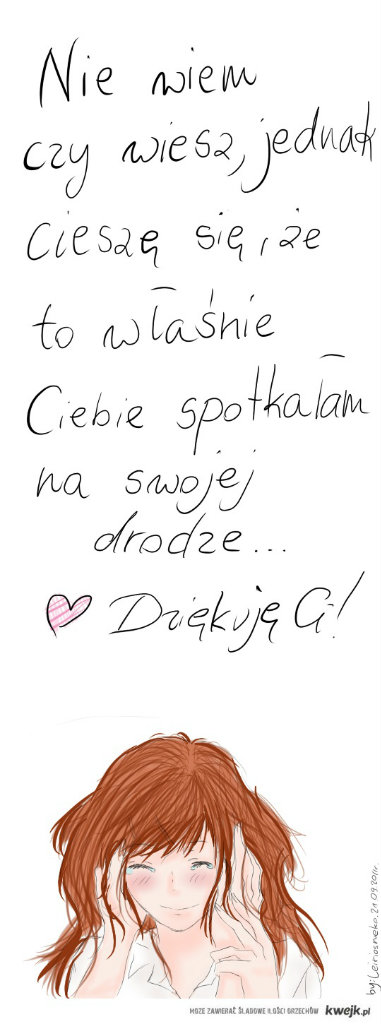 Nie wiem
czy wiesz, jednak
cieszę się, że
to właśnie
Ciebie spotkałam
na swojej
drodze...
Dziękuję Ci!
MOŻE ZAWIERAĆ ŚLADOWE ILOŚCI ORZECHÓW kwejk.pl